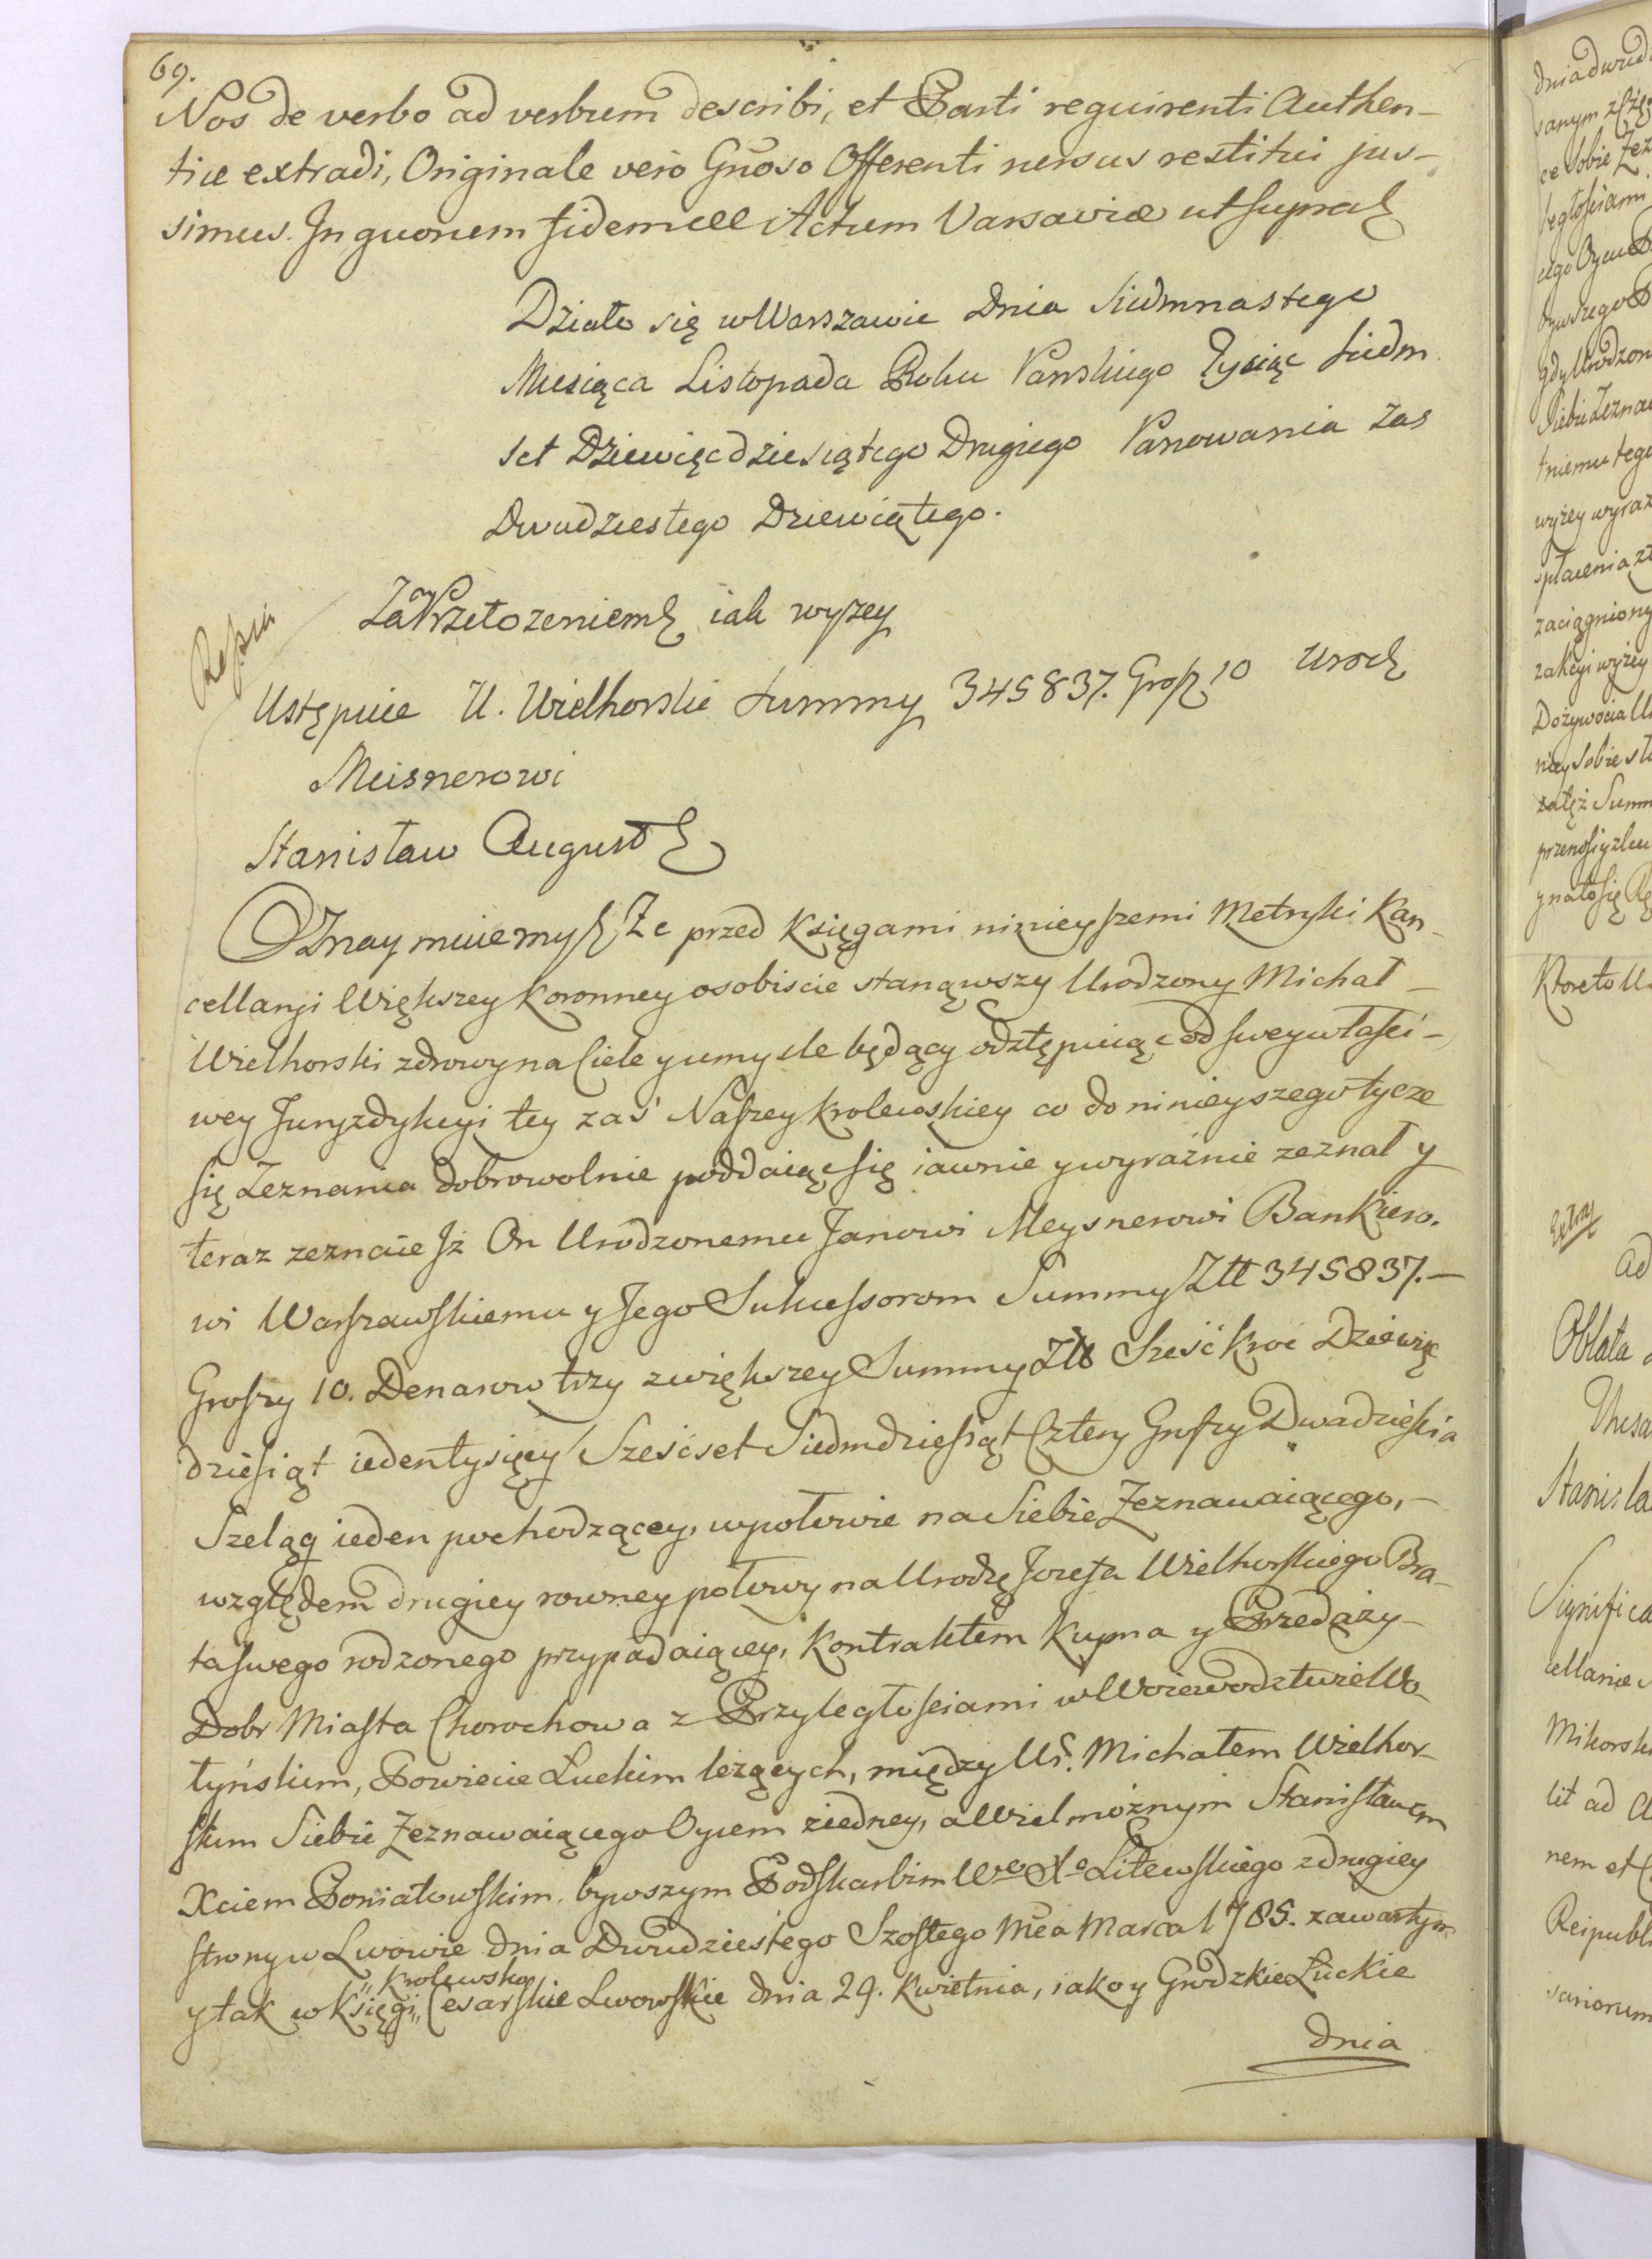 69.
Nos de verbo ad verbum describi, et Parti requirenti Authen-
tice extradi, Originale vero Gnoso Offerenti rursus restitui jus-
simus. In quorum fidem Actum Varsaviæ ut supra
Działo się w Warszawie Dnia Siudmnastego
Miesiąca Listopada Roku Panskiego Tysiąc siedm
set Dziewięcdziesiątego Drugiego Panowania zas
Dwudziestego Dziewiątego.
Za Przełozeniem iak wyzey
Ustępuie U. Wielhorski Summy 345837. Grosz 10 Urodz
Meisnerowi
Stanisław August
Oznaymuiemy Ze przed Księgami ninieyszemi Metryki Kan-
cellaryi Większey Koronney osobiscie stanąwszy Urodzony Michał
Wielhorski zdrowy na Ciele y umysle będący odztępuiąc od swey własci-
wey Juryzdykcyi tey zaś Naszey Krolewskiey co do ninieyszego tycze
się Zeznania dobrowolnie poddaiąc się iawnie y wyraźnie zeznał y
teraz zeznaie Jż On Urodzonemu Janowi Meysnerowi Bankiero-
wi Warszawskiemu y Jego Sukcessorom Summy Złł 345837.—
Groszy 10. Denarow trzy z większey Summy Złł Sześćkroć Dziewięć
dziesiąt ieden tysięcy Sześćset Siedmdziesiąt Cztery Groszy Dwadzieścia
Szeląg ieden pochodzącey, w połowie na Siebie Zeznawaiącego,—
względem drugiey rowney połowy na Urodzę Jozefa Wielhorskiego Bra-
ta swego rodzonego przypadaiącey, Kontraktem Kupna y Przedaży
Dobr Miasta Chorochowa z Przyległościami w Woiewodztwie Wo-
łyńskim, Powiecie Łuckim leżących, między Ur. Michałem Wielhor-
skim Siebie Zeznawaiącego Oycem z iedney, a Wielmożnym Stanisławem
Xciem Poniatowskim, bywszym Podskarbim Wo Xo Litewskiego z drugiey
strony w Lwowie dnia Dwudziestego Szostego Mca Marca 1785. zawartym
y tak w Księgi „Krolewsko„ Cesarskie Lwowskie dnia 29. Kwietnia, iako y Grodzkie Łuckie
dnia